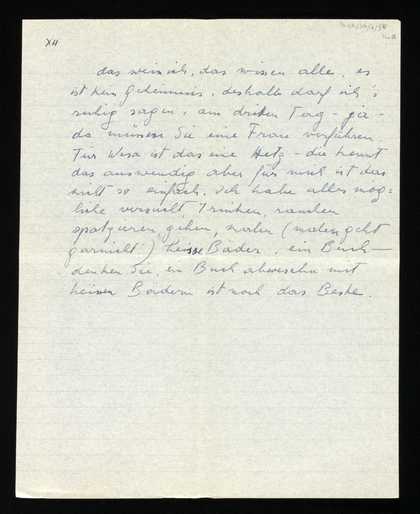 XII
das weiss ich, das wissen alle, es
ist kein Geheimnis, deshalb darf ich's
ruhig sagen, am dritten Tag - ja -
da müssen Sie eine Frau verführen.
Für ist das eine Hetz - die kennt
das auswendig aber für mich ist das
nicht so einfach. Ich habe alles mög=
liche versucht Trinken, rauchen
spatzieren gehen, malen (malen geht
garnicht) heisse Bäder, ein Buch -
denken Sie, ein Buch abwechseln mit
heissen Bädern ist noch das Beste.